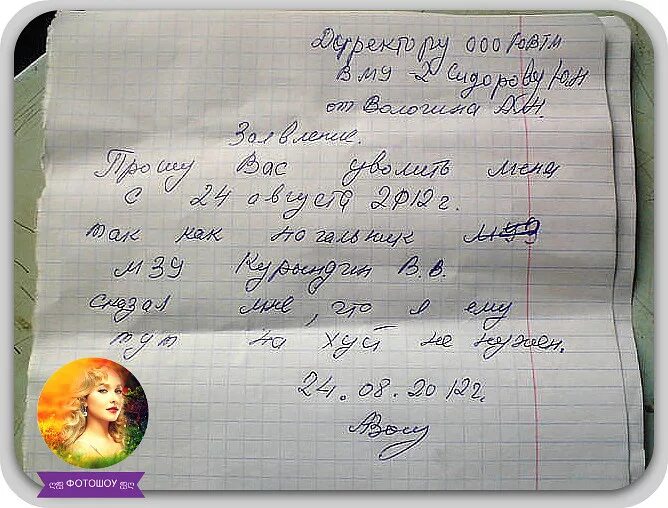 Директору ООО ЮВТМ
ВМУ 2 Сидорову ЮН
от Вологина А.Н.
Заявление.
Прошу Вас уволить меня
с 24 августа 2012 г.
так как начальник
МЗУ Курындин В.В.
сказал мне, что я ему
тут на хуй не нужен.
24.08.2012г.
ФОТОШОУ